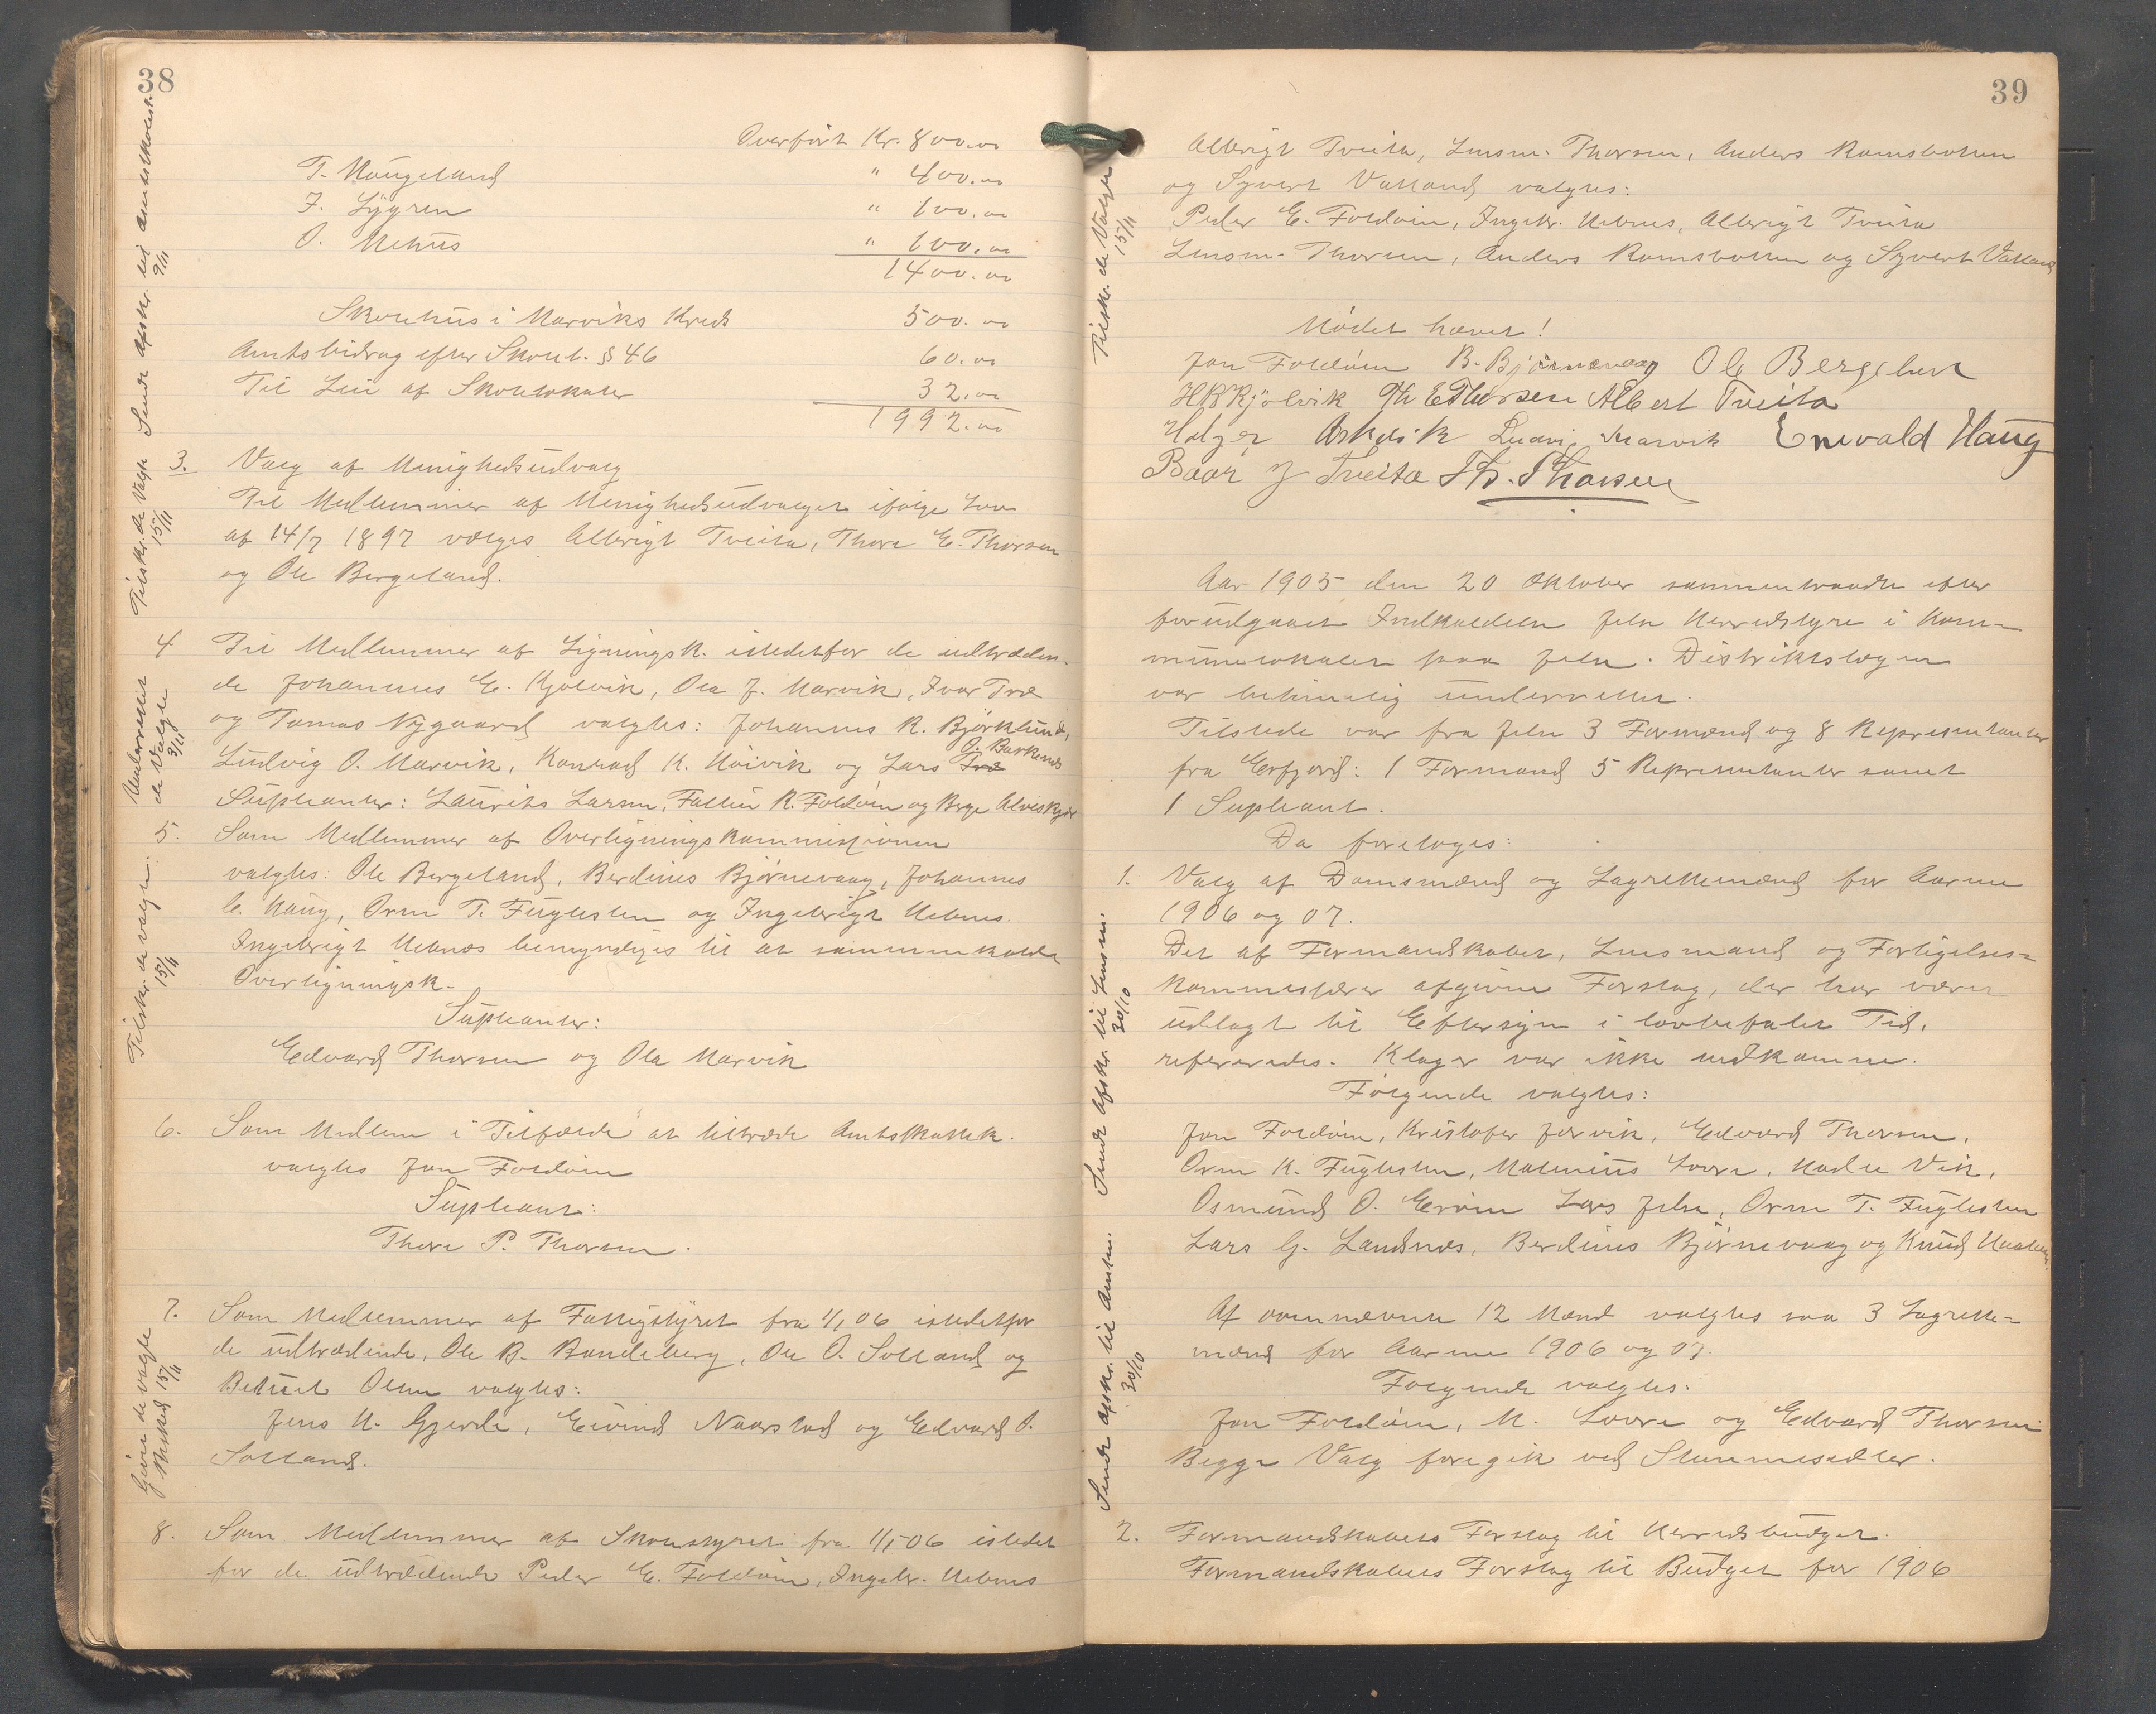 38
Overført Kr. 800.00
T. Haugeland " 400.00
J. Lygren " 100.00
O. Mehus " 100.00
1400.00
Skolehus i Marviks Kreds 500.00
Amtsbidrag efter Skolel. § 46 60.00
Til Leie af Skolelokaler 32.00
1992.00
Sendt afskr. til Amtsskolest. 9/11
3. Valg af Menighedsudvalg
Til Medlemmer af Menighedsudvalget ifølge Lov
af 14/7 1897 vælges Albrigt Tveita, Thore E. Thorsen
og Ole Bergeland.
Tilskr. de Valgte 15/11
4 Til Medlemmer af Ligningsk. istedetfor de udtræden-
de Johannes E. Kjølvik, Ola J. Marvik, Ivar Træ
og Tomas Nygaard valgtes: Johannes R. Bjørklund,
Ludvig O. Marvik, Konrad K. Høivik og Lars O. Barkeneds
Supleanter: Laurits Larsen, Fallein R. Foldøen og Berge
Underrettet de Valgte 3/11
5. Som Medlemmer af Overligningskommissionen
valgtes: Ole Bergeland, Berdines Bjørnevaag, Johannes
C. Haug, Orm T. Fuglesten og Ingebrigt Hebnes.
Ingebrigt Hebnes bemyndiges til at sammenkalde
Overligningsk.
Supleanter:
Edvard Thorsen og Ola Marvik
Tilskr. de valgte. 15/11
6. Som Medlem i Tilfælde at tiltræde Amtsskattek.
valgtes Jon Foldøen
Supleant:
Thore P. Thorsen.
7. Som Medlemmer af Fattigstyret fra 1/1 06 istedetfor
de udtrædende, Ole B. Bandeberg, Ole O. Solland og
Betuel Olsen valgtes:
Jens H. Gjerde, Eivind Naarstad og Edvard O.
Solland.
Given de valgte Besked 15/11
8. Som Medlemmer af Skolestyret fra 1/1-06 istedet
for de udtrædende Peder E. Foldøen, Ingebr. Hebnes
39
Albrigt Tveita, Lensm. Thorsen, Anders Ramsbotten
og Syvert Vatland valgtes:
Peder E. Foldøen, Ingebr. Hebnes, Albrigt Tveita
Lensm. Thorsen, Anders Ramsbotten og Syvert Vatland
Tilskr. de Valgte 15/11
Mødet hævet!
Jon Foldøen B. Bjørnevaag Ole Bergeland
Kjølvik Th E Thorsen Albert Tveita
Holger Askvik Ludvig Marvik Enevald Haug
Baar J Tveita Th. Thorsen
Aar 1905 den 20 Oktober sammentraadte efter
forudgaaet Indkaldelse Jelse Herredstyre i Kom-
munelokalet paa Jelse. Distriktslægen
var betimelig underrettet.
Tilstede var fra Jelse 3 Formænd og 8 Representanter
fra Erfjord: 1 Formand, 5 Representanter samt
1 Supleant.
Da foretoges:
1. Valg af Domsmænd og Lagrettemænd for Aarene
1906 og 07.
Det af Formandskabet, Lensmand og Forligelses-
kommissærer afgivne Forslag, der har været
udlagt til Eftersyn i lovbefalet Tid,
refereredes. Klager var ikke indkomne.
Følgende valgtes:
Jon Foldøen, Kristofer Jørvik, Edvard Thorsen,
Orm K. Fuglesten, Mathenius Lovra, Vik,
Osmund O. Erøen Lars Jelse, Orm T. Fuglesten
Lars G. Landsnes, Berdines Bjørnevaag og Knud
Sendt afskr. til Lensm. 30/10
Af ovennævnte 12 Mænd valgtes saa 3 Lagrette-
mænd for Aarene 1906 og 07.
Følgende valgtes.
Jon Foldøen, M. Lovra og Edvard Thorsen
Begge Valg foregik ved Stemmesedler.
Sendt afskr. til Amtm. 30/10
2. Formandskabets Forslag til Herredsbudget.
Formandskabets Forslag til Budget for 1906